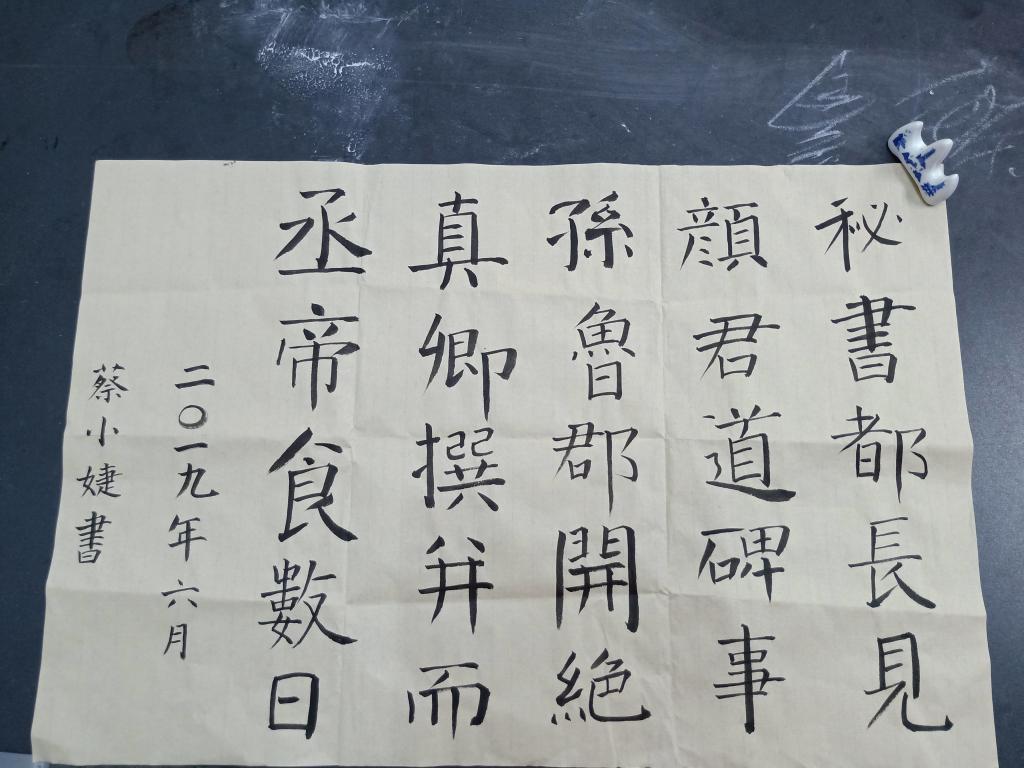 秘書都長見
顏君道碑事
孫魯郡開絕
真卿撰并而
丞帝食數日
二〇一九年六月
蔡小婕書